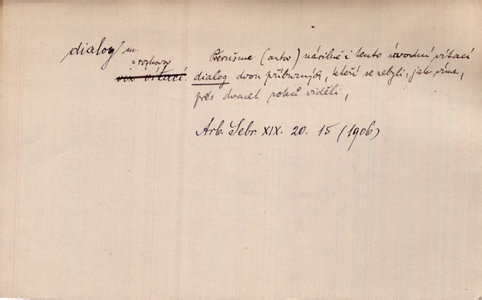 dialog m.
= rozhovor
vox vítací
Přerušme (autor) násilně i tento úvodní vítací
dialog dvou příbuzných, kteří se nebyli, jako víme,
přes dvacet roků viděli,
Arb. Sebr. XIX. 20. 15 (1906)